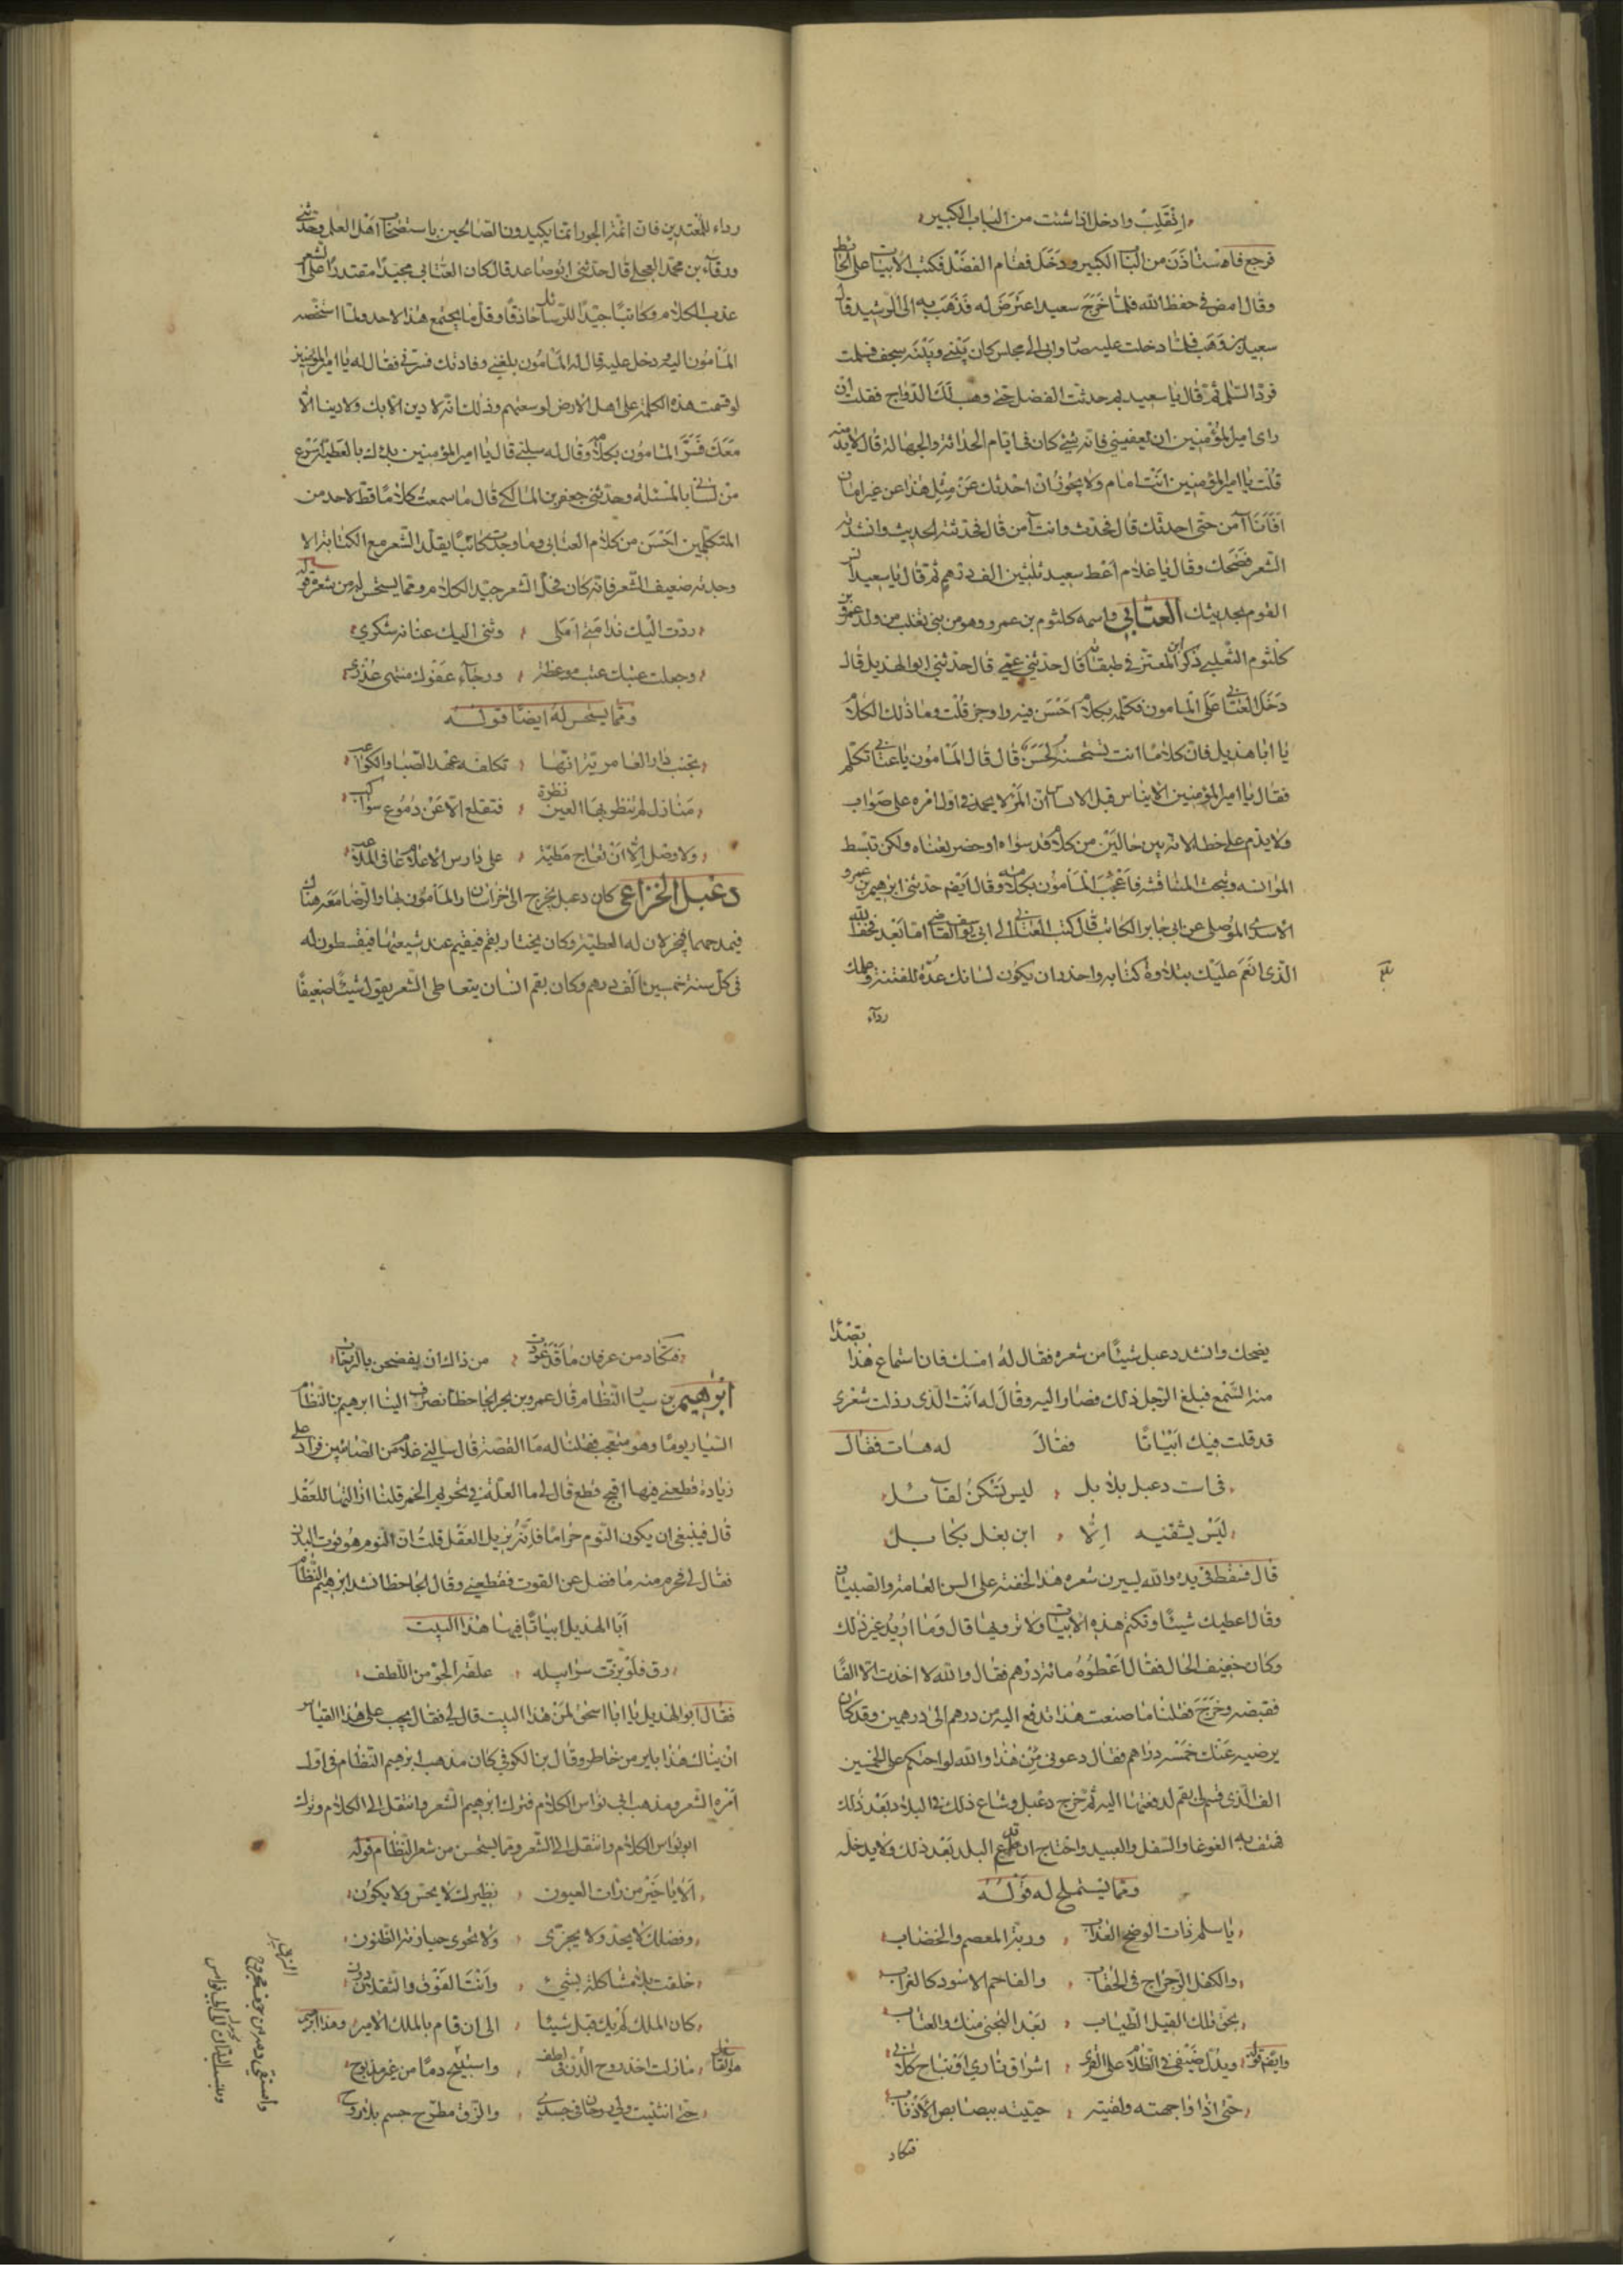 انقلب وادخل اذا شئت من الباب الكبير
فرجع فاستاذن من الباب الكبير ودخل فقام الفضل فكتب الابيات على الحائط
وقال امض في حفظ الله فلما خرج سعيد اعترض له فذهب به الى الرشيد قال
سعيد بن وهب فلما دخلت عليه صار بي الى مجلس كان بيني وبينه سجف فسلمت
فرد السلام ثم قال يا سعيد بم حدثت الفضل حتى وهب لك الدواج فقلت ان
راى امير المؤمنين ان يعفيني فانه شئ كان في ايام الحداثة والجهالة قال لا بد منه
قلت يا امير المؤمنين انت امام ولا يجوز ان احدثك عن مثل هذا عن غير امان
افانا آمن حتى احدثك قال فحدث وانت آمن قال فحدثته الحديث وانشدته
الشعر فضحك وقال يا غلام اعط سعيد ثلثين الف درهم ثم قال يا سعيد
القوم بحديثك العتابي واسمه كلثوم بن عمرو وهو من بني تغلب من ولد عمرو بن
كلثوم التغلبي ذكر ابن المعتز في طبقاته قال حدثني عمي قال حدثني ابو الهذيل قال
دخل العتابي على المامون فكلمه بكلام احسن فيه واوجز قلت وما ذلك الكلام
يا ابا هذيل فان كلاما انت تستحسنه لحسن قال قال المامون يا عتابي تكلم
فقال يا امير المؤمنين الايناس قبل الابساس ان المرء لا يحمد في اول امره على صواب
ولا يذم على خطا لانه بين حالتين من كلام قد سواه او حضر بغناه ولكن تبسط
الموانسة وتبحث المناقشة فاعجب المامون بكلامه وقال ايضم حدثني ابرهيم بن عمرو
الاسدي الموصلي عن ابي جابر الكاتب قال كتب العتابي الى ابي يوسف القاضي اما بعد فخف الله
الذى انعم عليك بتلاوة كتابه واحذر ان يكون لسانك عدة للفتنة وعملك
رداء
رداء للمعتدين فان ائمة الجور انما يكيدون الصالحين باستصحاب اهل العلم وحدثني
ورقاء بن محمد العجلي قال حدثني ابو صاعد قال كان العتابي مجيدا مقتدرا على الشعر
عذب الكلام وكاتبا جيدا للرسائل حاذقا وقل ما يجتمع هذا لاحد ولما اشخصه
المامون اليه ودخل عليه قال له المامون بلغني وفادتك فسرتني فقال له يا امير المؤمنين
لو قسمت هذه الكلمة على اهل الارض لوسعتهم وذلك انه لا دين الا بك ولا دينا الا
معك فسر المامون بكلامه وقال له سلني قال يا امير المؤمنين يدك بالعطية اسرع
من لساني بالمسئلة وحدثني جعفر بن المالكي قال ما سمعت كلاما قط لاحد من
المتكلمين احسن من كلام العتابي وما وجدت كاتبا يقلد الشعر مع الكتابة الا
وجدته ضعيف الشعر فانه كان فحل الشعر جيد الكلام ومما يستحسن له من شعره قوله
ردت اليك ندامتي املى وثنى اليك عنانه شكري
وجعلت عتبك عتب موعظة ورجاء عفوك منتهى عذري
ومما يستحسن له ايضا قوله
تجنب دار العامرية انها تكلفه عهد الصبا والكواعب
منازل لم تنظر بها العين نظرة فتقلع الا عن دموع سواكب
ولا وصل الا ان تعاج مطية على دارس الاعلام عافى الملاعب
دعبل الخزاعى كان دعبل يخرج الى خراسان والمامون بها والرضا معه هناك
فيمدحهما فيجزلان له العطية وكان يجتاز بقم فيقيم عند شيعتها فيقسطون له
فى كل سنة خمسين الف درهم وكان بقم انسان يتعاطى الشعر يقول شيئا ضعيفا
يضحك وانشد دعبل شيئا من شعره فقال له امسك فان استماع هذا
منه السمع فبلغ الرجل ذلك فصار اليه وقال له انت الذى رذلت شعرى
قد قلت فيك ابياتا فقال له هات فقال
في است دعبل بلابل ليس تسكن لقابل
ليس يشفيه الا اير بغل بكابل
قال فسقط في يده والله ليسيرن شعره هذا لخفته على السن العامة والصبيان
وقال اعطيك شيئا وتكتم هذه الابيات ولا ترويها قال وما اريد غير ذلك
وكان خفيف الحال فقال اعطوه مائة درهم فقال والله لا اخذت الا الفا
فقبضه وخرج فقلنا ما صنعت هذا تدفع اليه من درهم الى درهمين وقد كان
يرضيه عنك خمسة دراهم فقال دعوني من هذا والله لو احتكم على الخمسين
الف الذى قسم لي بقم لدفعتها اليه ثم خرج دعبل وشاع ذلك في البلاد بعد ذلك
فهتف به الغوغا والسفل والعبيد واحتاج ان يدع البلد بعد ذلك ولا يدخله
ومما يستملح له قوله
يا سلم ذات الوضح العذاب وربة المعصم والخضاب
والكفل الرجراج فى الحقاب والفاحم الاسود كالغراب
بحق تلك القبل الطياب بعد التجنى منك والعتاب
وايضم قوله ويدل ضيفى فى الظلام على القرى اشراق نارى او نباح كلابى
حتى اذا واجهته ولقيته حييته ببصابص الاذناب
فتكاد
فتكاد من عرفان ما قد عودت من ذاك ان يفصحن بالترحاب
ابرهيم بن سيار النظام قال عمرو بن بحر الجاحظ انصرف الينا ابرهيم بن النظام
السيار يوما وهو متعجب فقلنا له ما القصة قال سالني غلام من الصابئين فزاد على
زيادة قطعني فيها اقبح قطع قال لي ما العلة في تحريم الخمر قلنا ازالتها للعقل
قال فينبغى ان يكون النوم حراما فانه يزيل العقل قلت ان النوم هو قوت البدن
فقال لي فحرم منه ما فضل عن القوت فقطعني وقال الجاحظ انشد ابرهيم النظام
ابا الهذيل ابياتا فيها هذا البيت
رق فلو بزت سرابيله علقه الجو من اللطف
فقال ابو الهذيل يا ابا اسحق لمن هذا البيت قال لي فقال يجب على هذا القياس
ان يناك هذا باير من خاطر وقال بن الكوفي كان مذهب ابرهيم النظام فى اول
امره الشعر ومذهب ابي نواس الكلام فترك ابرهيم الشعر وانتقل الى الكلام وترك
ابو نواس الكلام وانتقل الى الشعر ومما يستحسن من شعر النظام قوله
الا يا خير من رات العيون نظيرك لا يحس ولا يكون
وفضلك لا يحد ولا يجزى ولا تحوى حيازته الظنون
خلقت بلا مشاكلة لشئ وانت الفوق والثقلان دون
كان الملك لم يك قبل شيئا الى ان قام بالملك الامين
مازلت اخذ روح الدن فى لطف واستبيح دما من غير مذبوح
حتى انثنيت ولي روحان فى جسدي والزق مطرح جسم بلا روح